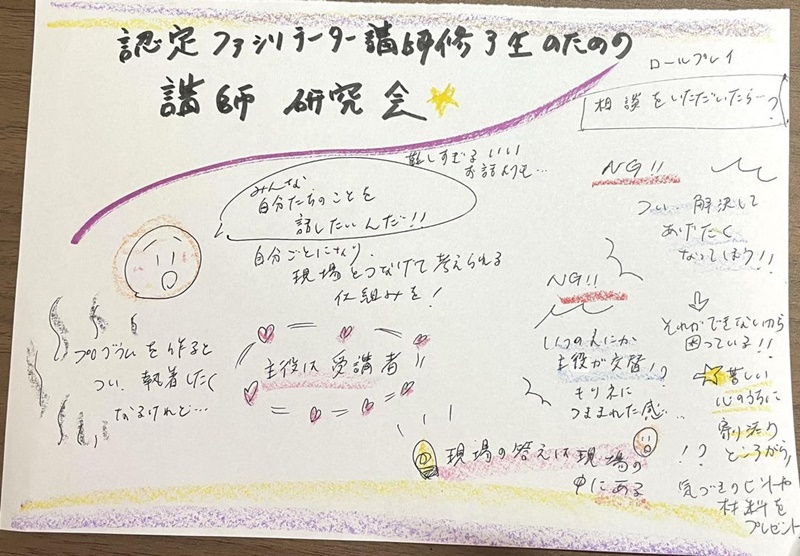 認定ファシリテーター講師修了生のための
講師 研究会
ロールプレイ
相談をいただいたら…?
難しすぎる いい
お話よりも…
みんな
自分たちのことを
話したいんだ!!
自分ごとになり、
現場とつなげて考えられる
仕組みを!
プログラムを作ると
つい、執着したく
なるけれど…
主役は受講者!!
NG!!
つい 解決して
あげたく
なってしまう!!
それができないから
困っている!!
苦しい
心のうちに
寄り添う
ところから、
気づきのヒントや
材料を
プレゼント
NG!!
いつのまにか
主役が交替!?
キツネに
つままれた感…
!?
現場の答えは現場の
中にある